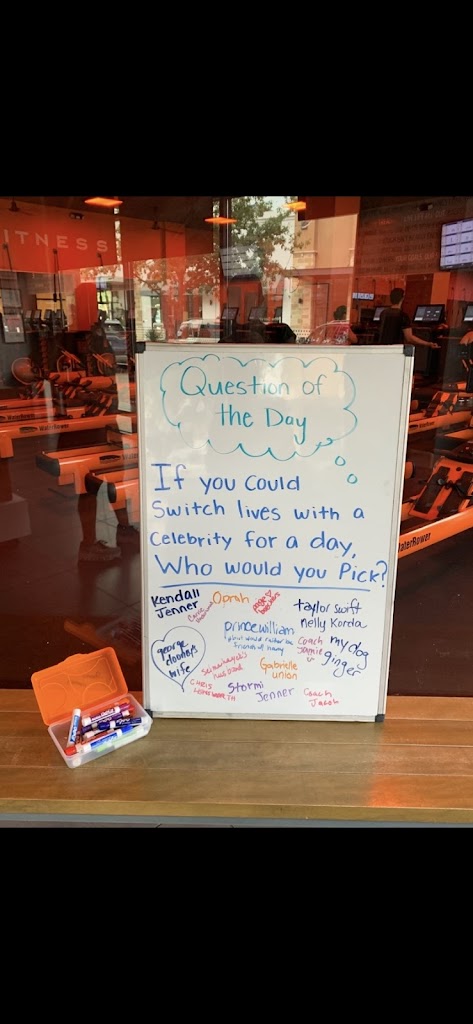 ITNESS
Question of
the Day
If you could
Switch lives with a
Celebrity for a day,
Who would you Pick?
Kendall
Jenner
Oprah
taylor swift
nelly Korda
prince william
friends w/ harry
coach
Jamie
my dog
ginger
george
clooney's
wife
husband
CHRIS
Gabrielle
union
Stormi
Jenner
Coach
Jacob
WaterRower